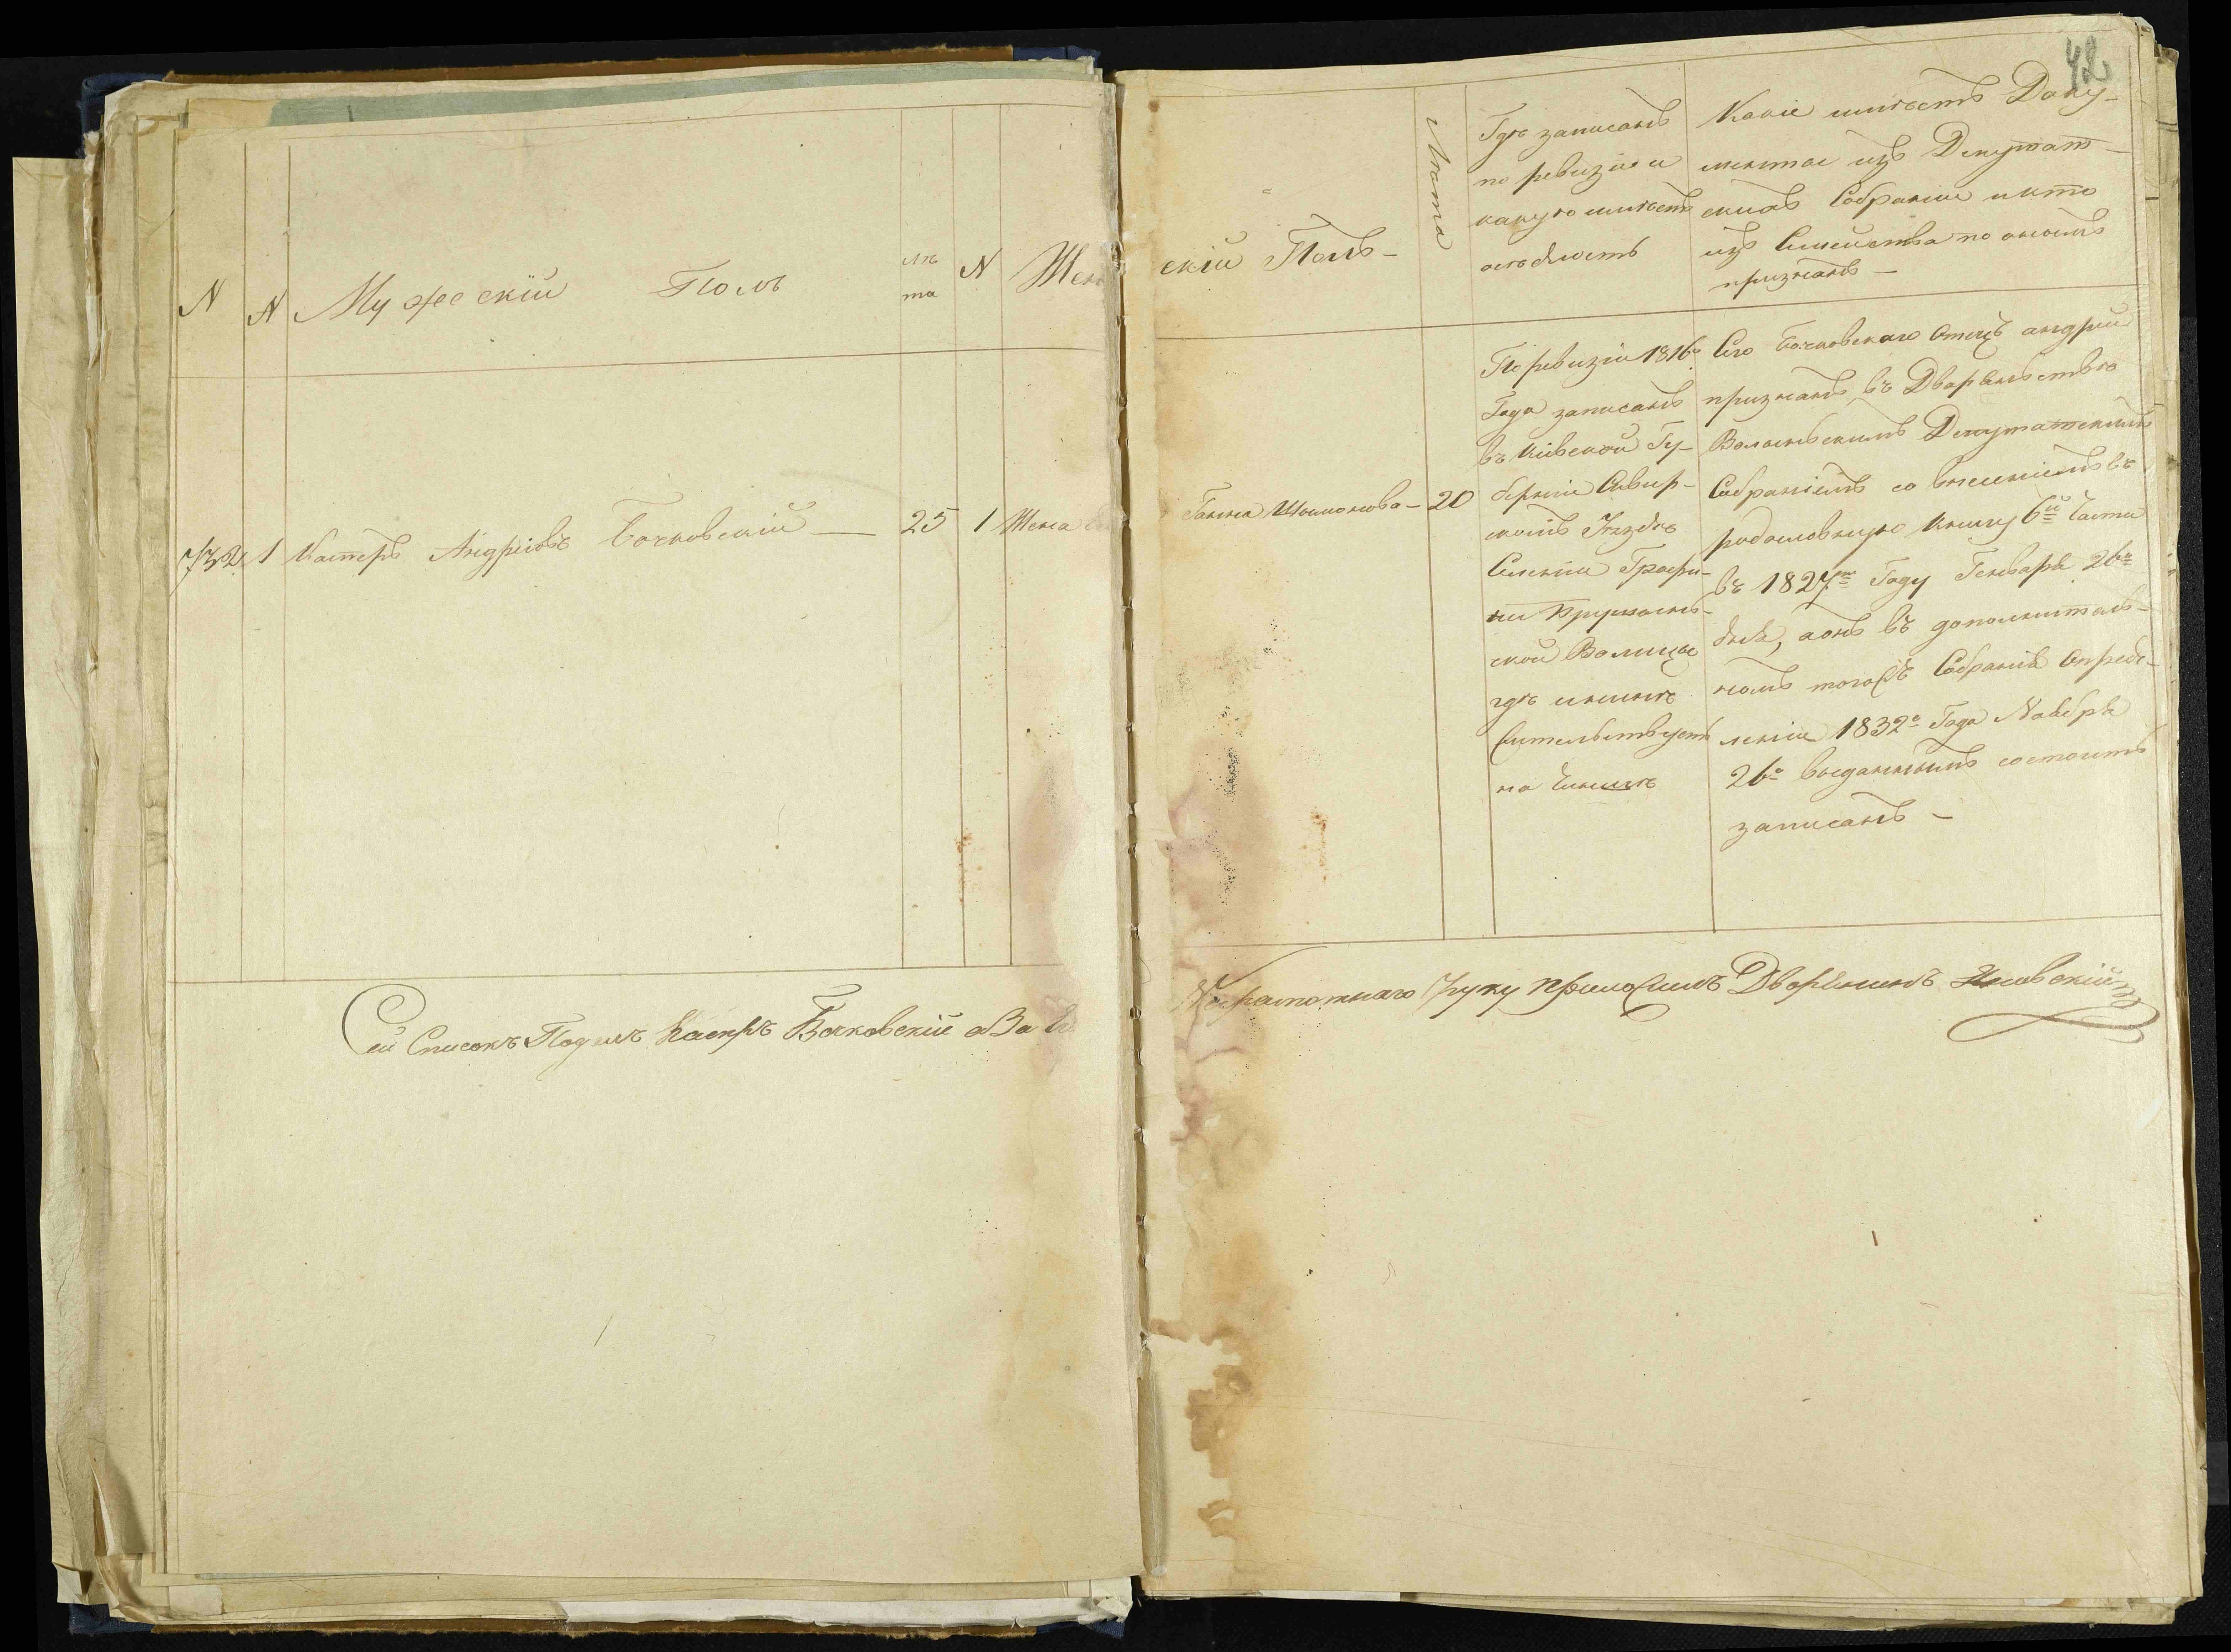 42
N
N
Мужеский Полъ
лѣ
та
N
Жен
ский Полъ -
Лѣта
Гдѣ записанъ
по ревизіи и
какую имѣетъ
осѣдлость
Какіе имѣетъ Доку-
менты изъ Депутат-
скихъ Собраніи и кто
изъ Семейства по онымъ
признанъ -
1 Касперъ Андріевъ Бочковскій — 25
1 Жена
Ганна Шымонова - 20
По ревизіи 1816го
Года записанъ
въ Кіевской Гу-
берніи Сквир-
скомъ Уездѣ
Селеніи Графи-
ни
ской Волицы
гдѣ и нынѣ
жительствуетъ
на чиншѣ
Его Бочковскаго Отецъ андрей
признанъ въ Дворянство
Волынскимъ Депутатскимъ
Собраніемъ со внесеніемъ въ
родословную Книгу 6й Части
въ 1827м Году Генваря 26го
дня, а онъ въ дополнитель-
номъ тогожъ Собранія Опреде-
леніи 1832го Года Ноября
26го выданнымъ состоитъ
записанъ -
Сей Списокъ Подалъ Каспръ Бочковскій а За Его
Неграмотнаго Руку приложилъ Дворянинъ